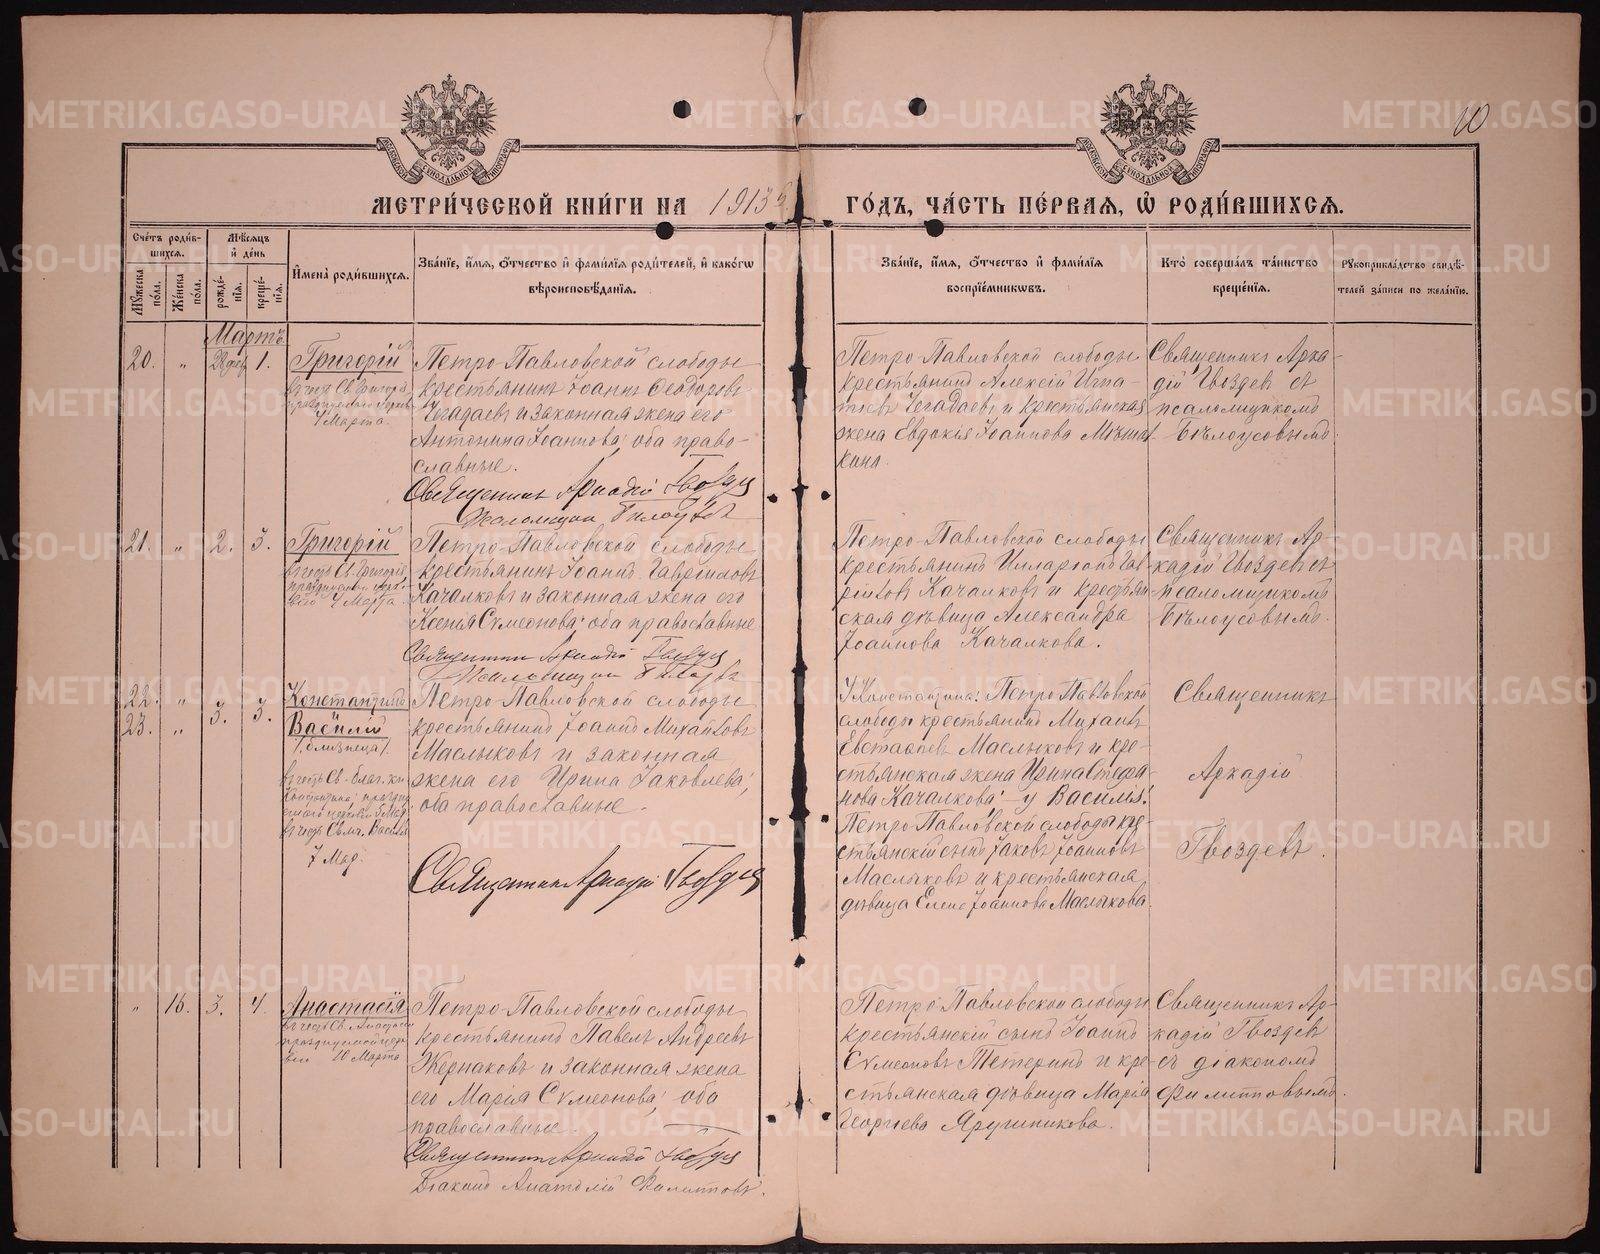 10
МЕТРИ́ЧЕСКОЙ КНИ́ГИ НА 1913 й
ГО́ДЪ, ЧА́СТЬ ПЕ́РВАЯ, Ѡ҆ РОДИ́ВШИХСЯ.
Сче́тъ роди́в-
шихся.
Мѣ́сяцъ
и҆ де́нь
Му́жеска по́ла.
Же́нска по́ла.
рожде́-нія.
креще́-нія.
И҆мена̀ роди́вшихся.
Зва́нїе, и҆́мя, ѻ҆́тчество и҆ фами́лїя роди́телей, и҆ како́гѡ
вѣроисповѣ́данїя.
Зва́нїе, и҆́мя, ѻ҆́тчество и҆ фами́лїя
воспрїе́мниковъ.
Кто̀ соверша́лъ та́инство
креще́нїя.
Рꙋкоприкла́дство свидѣ́-
телей за́писи по жела́нїю.
Мартъ.
20. „ 28 фев 1. Григорій
въ честь Св. Григорія
4 Марта.
Петро-Павловской слободы
крестьянинъ Іоаннъ Ѳеодоровъ
Чегадаевъ и законная жена его
Антонина Іоаннова; оба право-
славные.
Священникъ Аркадій Гвоздевъ
Псаломщикъ Бѣлоусовъ
Петро-Павловской слободы
крестьянинъ Алексій Игна-
тіевъ Чегадаевъ и крестьянская
жена Евдокія Іоаннова
Священникъ Арка-
дій Гвоздевъ съ
псаломщикомъ
Бѣлоусовымъ
21. „ 2. 3. Григорій
въ честь Св. Григорія
4 Марта
Петро-Павловской слободы
крестьянинъ Іоаннъ Гавриловъ
Качалковъ и законная жена его
Ксенія Сѵмеонова; оба православные
Священникъ Аркадій Гвоздевъ
Псаломщикъ Бѣлоусовъ
Петро-Павловской слободы
крестьянинъ Илларіонъ Гав-
ріиловъ Качалковъ и крестьян-
ская дѣвица Александра
Іоаннова Качалкова.
Священникъ Ар-
кадій Гвоздевъ съ
псаломщикомъ
Бѣлоусовымъ.
22. „
23. „ 3. 3.
Константинъ
Василій
/близнецы/.
въ честь Св. благ. кн.
Константина
въ честь Св. мч. Василія
7 Мар.
Петро-Павловской слободы
крестьянинъ Іоаннъ Михайловъ
Маслыковъ и законная
жена его Ирина Іаковлева;
оба православные.
Священникъ Аркадій Гвоздевъ
У Константина: Петро-Павловской
слободы крестьянинъ Михаилъ
Евстафіевъ Маслыковъ и кре-
стьянская жена Ирина Стефа-
нова Качалкова; – у Василія:
Петро-Павловской слободы кре-
стьянскій сынъ Іаковъ Іоанновъ
Маслыковъ и крестьянская
дѣвица Елена Іоаннова Маслыкова
Священникъ
Аркадій
Гвоздевъ.
„ 16. 3. 4. Анастасія
въ честь Св. Анастасіи
празднуемой церк-
вію 10 Марта
Петро-Павловской слободы
крестьянинъ Павелъ Андреевъ
Жернаковъ и законная жена
его Марія Сѵмеонова; оба
православные.
Священникъ Аркадій Гвоздевъ
Діаконъ Анатолій Филипповъ.
Петро-Павловской слободы
крестьянскій сынъ Іоаннъ
Сѵмеоновъ Тетеринъ и кре-
стьянская дѣвица Марія
Георгіева Ярушникова.
Священникъ Ар-
кадій Гвоздевъ
съ діакономъ
Филипповымъ.
METRIKI.GASO-URAL.RU